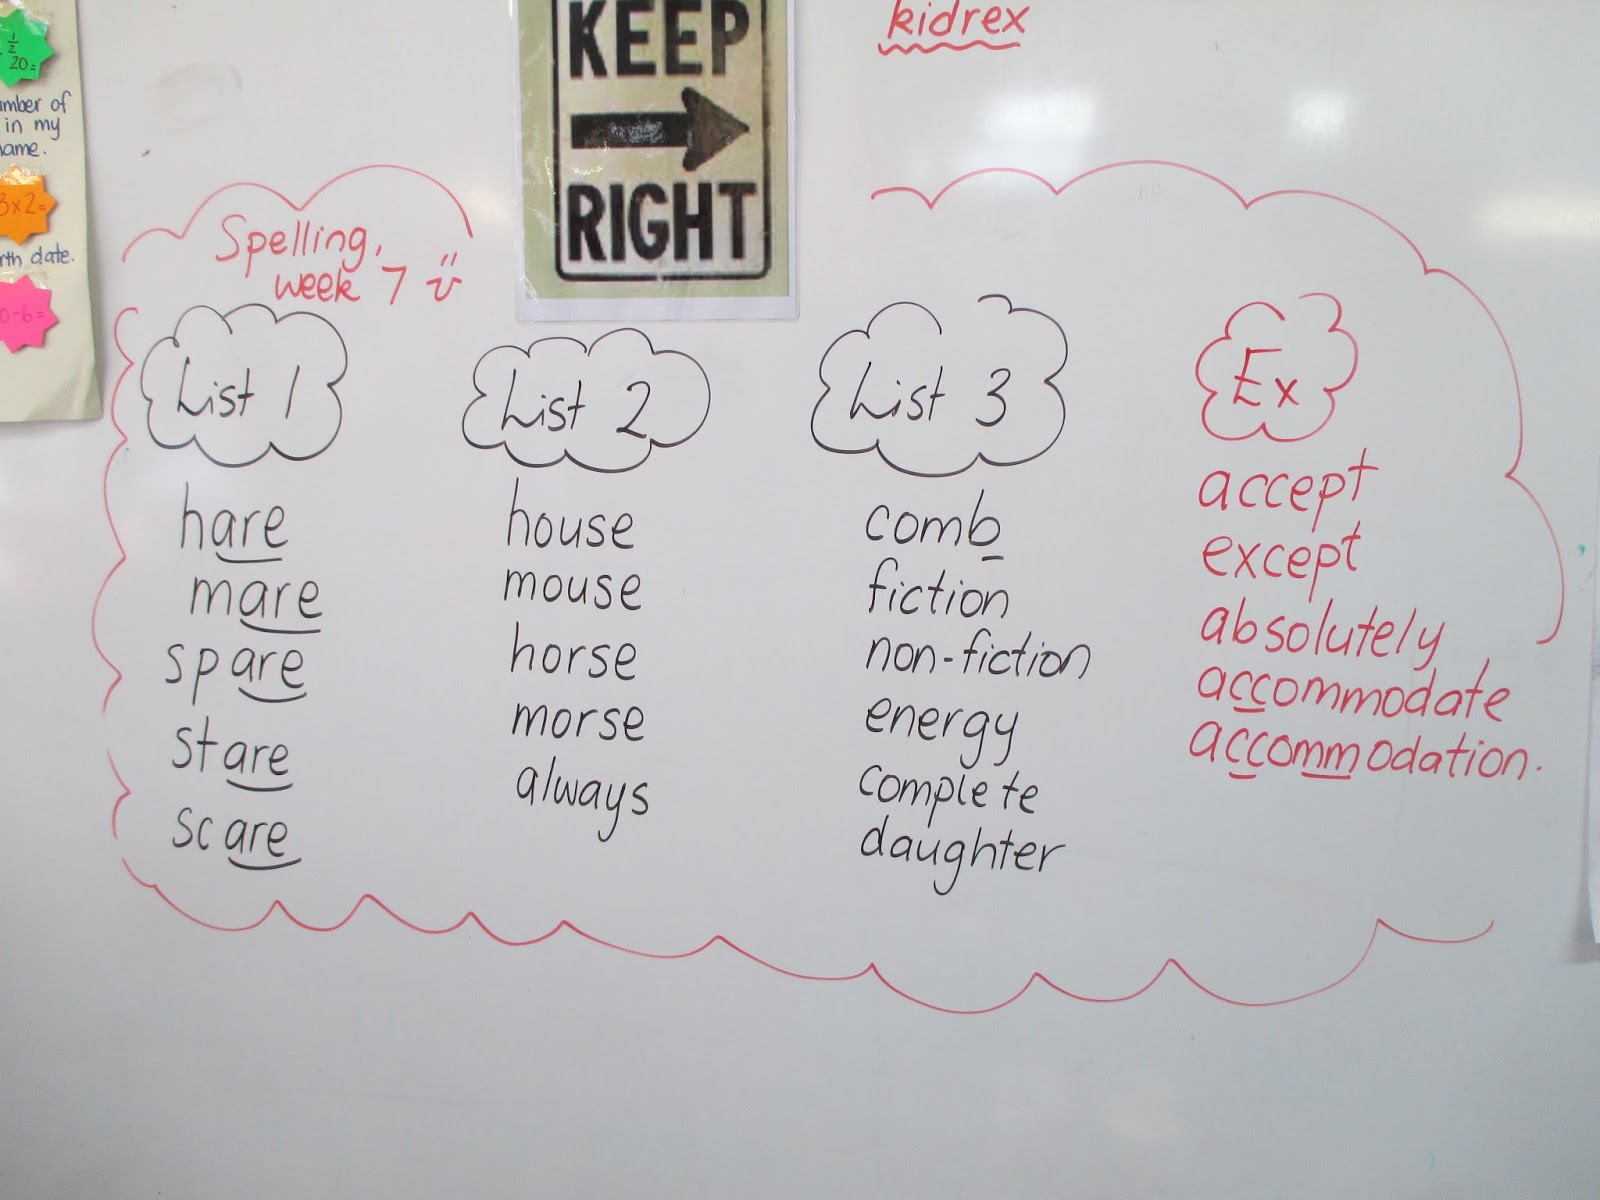 kidrex
KEEP
RIGHT
1/2
20=
in my
3x2=
date.
0-6=
Spelling,
week 7
List 1
hare
mare
spare
stare
scare
List 2
house
mouse
horse
morse
always
List 3
comb
fiction
non-fiction
energy
complete
daughter
Ex
accept
except
absolutely
accommodate
accommodation.